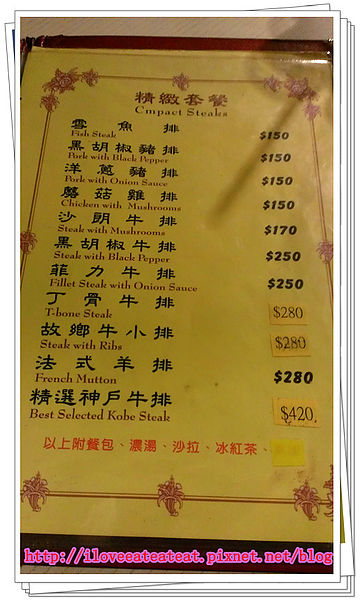 精緻套餐
Cmpact Steaks
雪魚排 $150
Fish Steak
黑胡椒豬排 $150
Pork with Black Pepper
洋蔥豬排 $150
Pork with Onion Sauce
蘑菇雞排 $150
Chicken with Mushrooms
沙朗牛排 $170
Steak with Mushrooms
黑胡椒牛排 $250
Steak with Black Pepper
菲力牛排 $250
Fillet Steak with Onion Sauce
丁骨牛排 $280
T-bone Steak
故鄉牛小排 $280
Steak with Ribs
法式羊排 $280
French Mutton
精選神戶牛排 $420
Best Selected Kobe Steak
以上附餐包、濃湯、沙拉、冰紅茶、
http://iloveeateateat.pixnet.net/blog